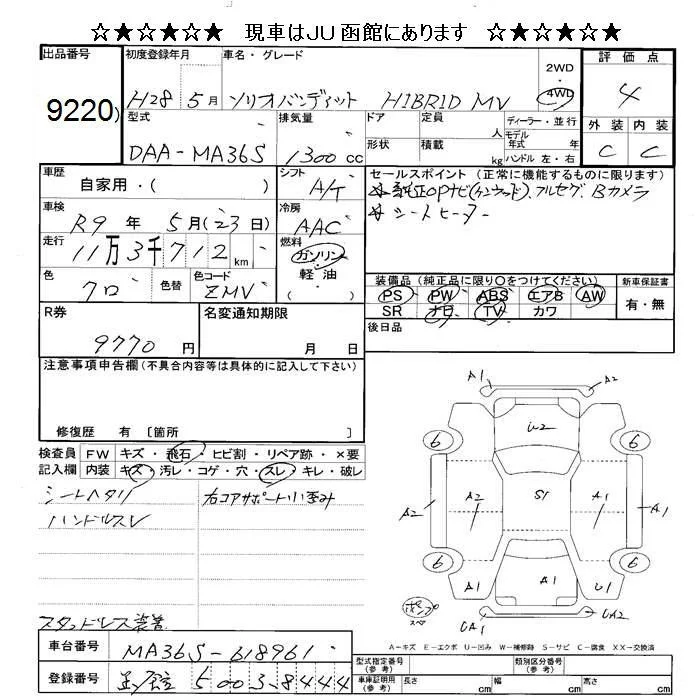 ☆★☆★☆★ 現車はJU函館にあります ☆★☆★☆★
出品番号 9220)
初度登録年月 H28 5月
車名・グレード ソリオバンディット HIBRID MV
2WD・4WD
評価点 4
外装 C 内装 C
型式 DAA-MA36S
排気量 1300cc
ドア 形状
定員 人 積載 kg
ディーラー・並行
モデル年式 年
ハンドル 左・右
車歴 自家用・( )
シフト A/T
車検 R9年 5月(23日)
冷房 AAC
走行 11万3千712km
燃料 ガソリン・軽油・( )
色 クロ 色替 色コード ZMV
セールスポイント (正常に機能するものに限ります)
☆純正OPナビ(ケンウッド)、フルセグ、Bカメラ
☆シートヒーター
装備品(純正品に限り○をつけてください)
PS PW ABS エアB AW
SR ナビ TV カワ
新車保証書 有・無
後日品
R券 9770円
名変通知期限 月 日
注意事項申告欄(不具合内容等は具体的に記入して下さい)
修復歴 有 〔箇所
検査員記入欄
FW キズ・飛石・ヒビ割・リペア跡・×要
内装 キズ・汚レ・コゲ・穴・スレ・キレ・破レ
シートヘタリ
ハンドルスレ
右コアサポート小歪み
スタッドレス装着
A1 A2
U2
6 6
A2 A2 S1 A1 A1
6 6
A1 A1 U1
UA1 UA2
スペア
A-キズ E-エクボ U-凹み W-補修跡 S-サビ C-腐食 XX-交換済
車台番号 MA36S-618961
登録番号 500 8444
型式指定番号(参考) 類別区分番号(参考)
車庫証明用(参考) 長さ cm 幅 cm 高さ cm